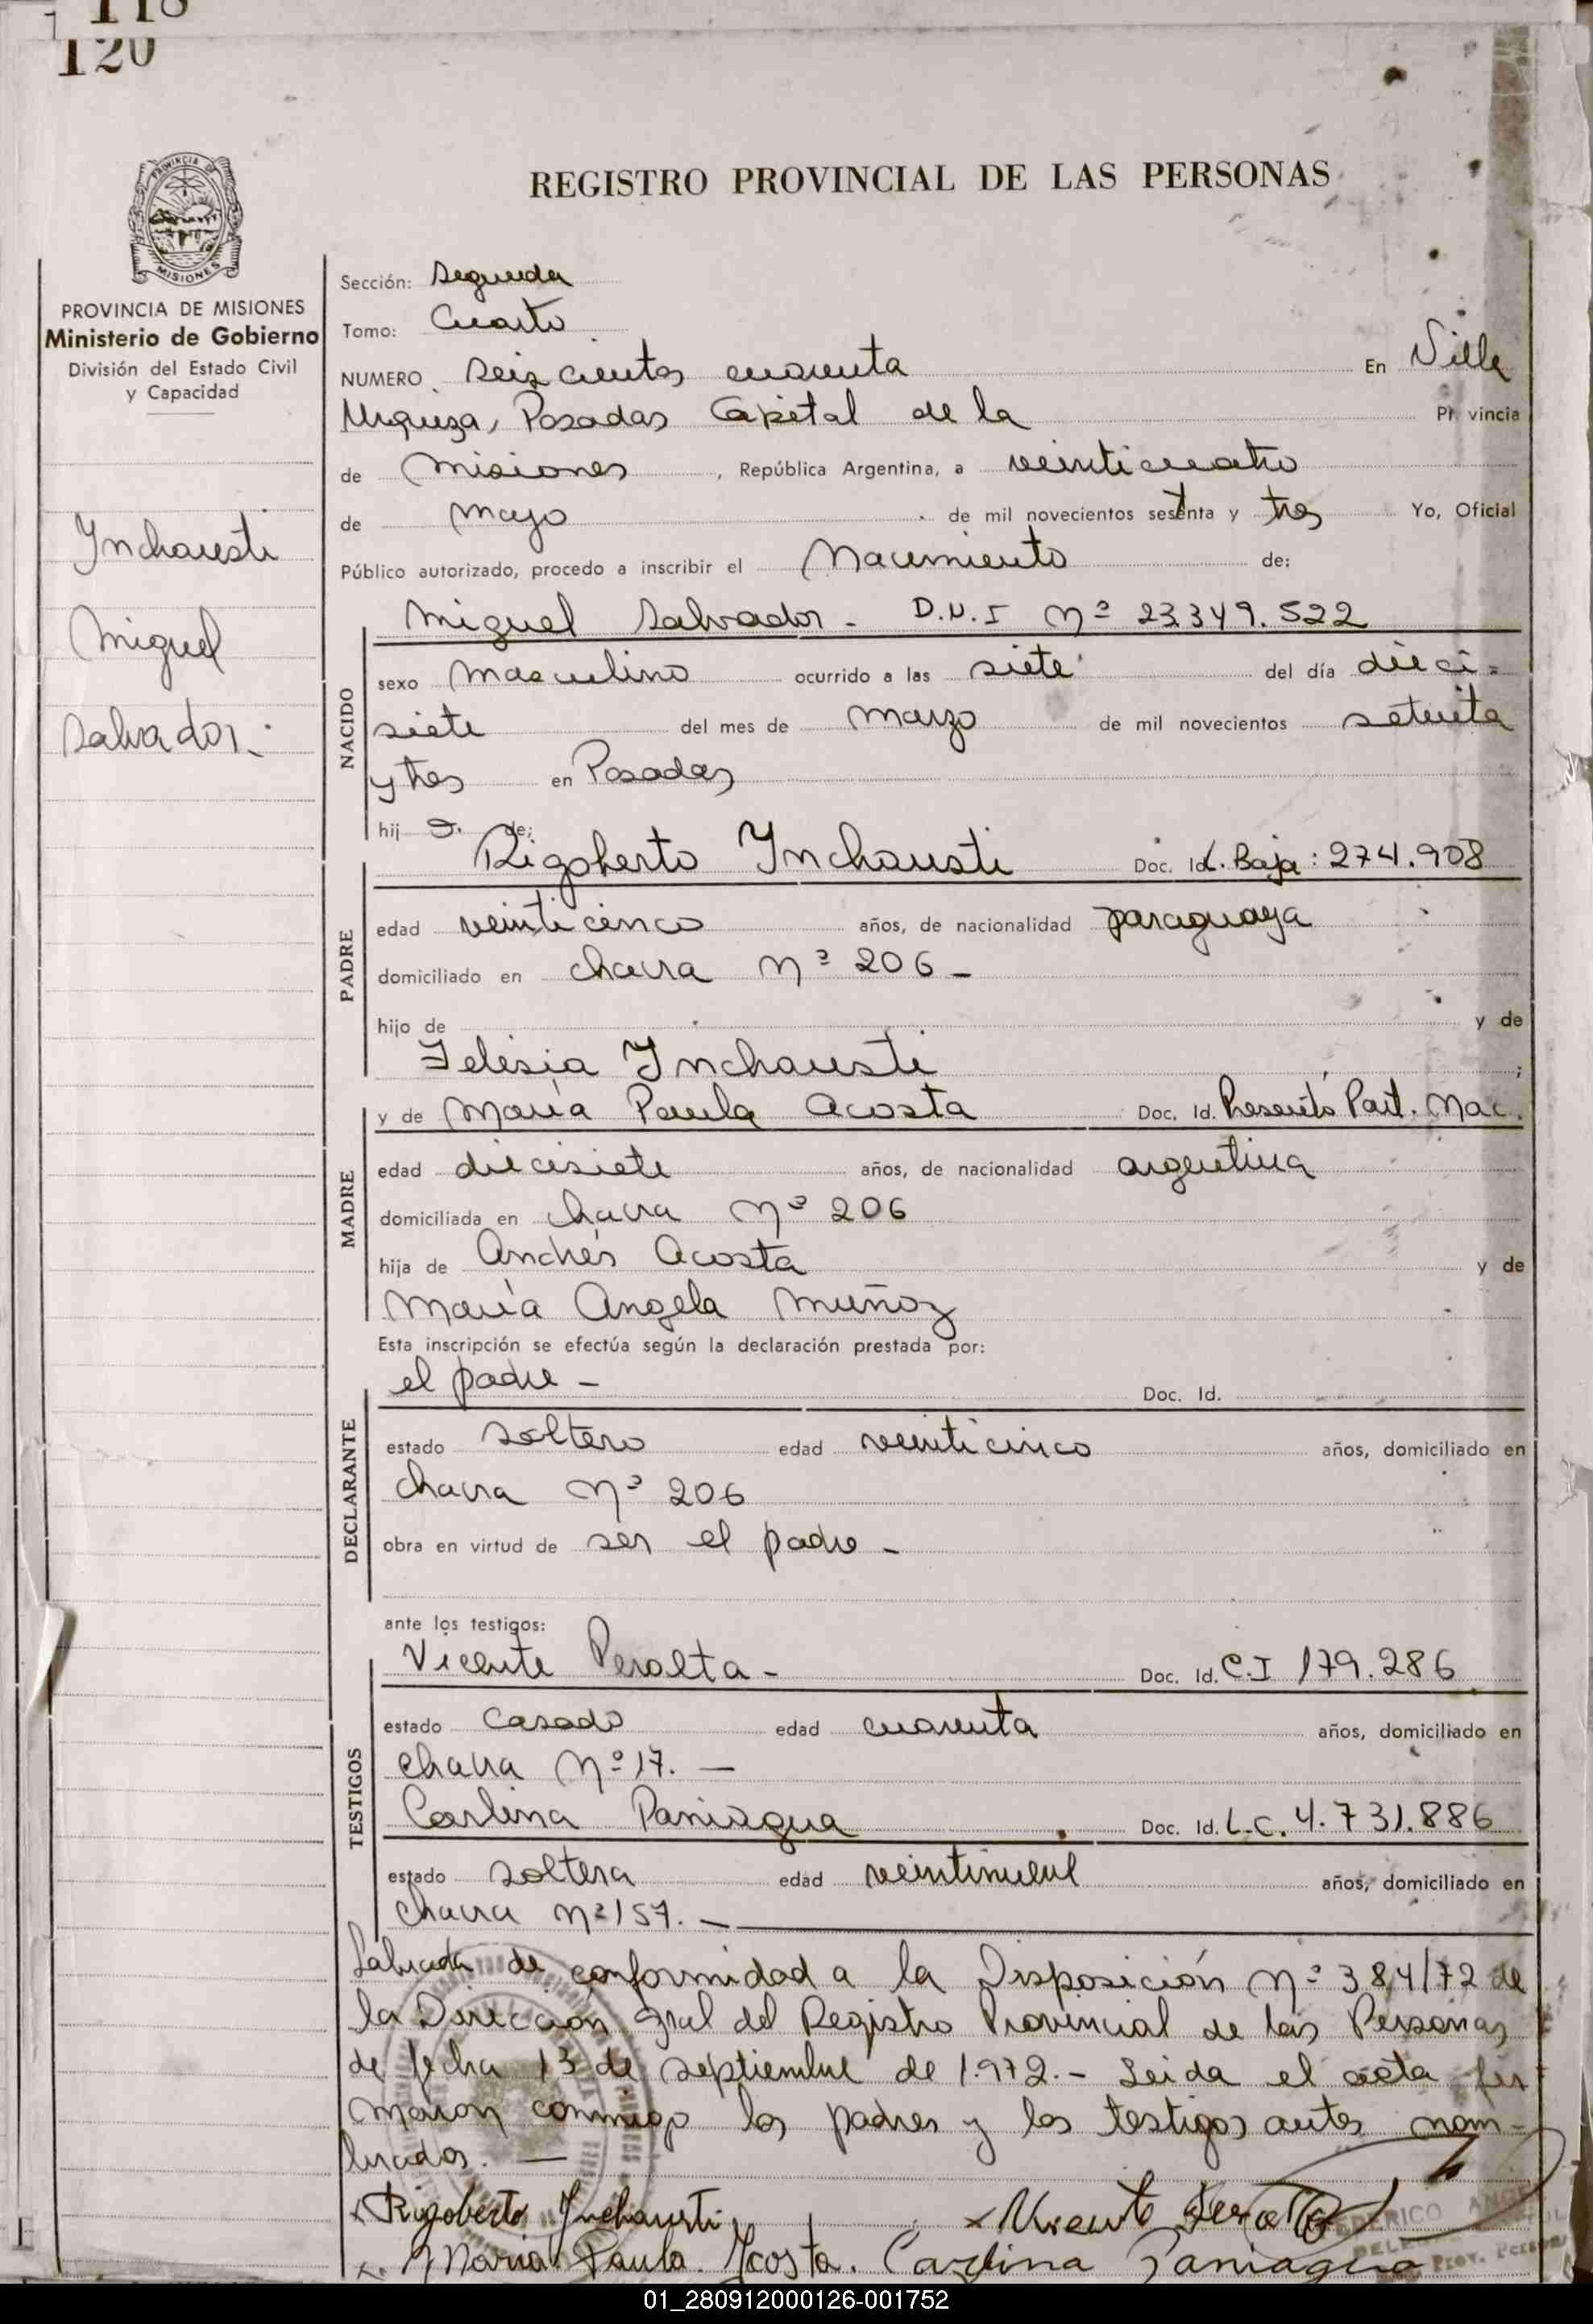 118
120
REGISTRO PROVINCIAL DE LAS PERSONAS
PROVINCIA DE
MISIONES
PROVINCIA DE MISIONES
Ministerio de Gobierno
División del Estado Civil
y Capacidad
Inchausti
Miguel
Salvador.-
Sección: Segunda
Tomo: Cuarto
NUMERO Seiscientos cuarenta En Villa
Urquiza, Posadas Capital de la Provincia
de Misiones, República Argentina, a veinticuatro
de Mayo de mil novecientos sesenta y tres Yo, Oficial
Público autorizado, procedo a inscribir el Nacimiento de:
Miguel Salvador - D.N.I Nº 23.349.522
NACIDO
sexo Masculino ocurrido a las siete del día dieci=
siete del mes de Marzo de mil novecientos setenta
y tres en Posadas
hijo de:
PADRE
Rigoberto Inchausti Doc. Id. L. Baja: 274.908
edad veinticinco años, de nacionalidad paraguaya
domiciliado en chacra Nº 206 -
hijo de y de
Inchausti ;
MADRE
y de María Paula Acosta Doc. Id. Presentó Part. Nac.
edad diecisiete años, de nacionalidad argentina
domiciliada en chacra Nº 206
hija de Andrés Acosta y de
María Angela Muñoz
Esta inscripción se efectúa según la declaración prestada por:
DECLARANTE
el padre - Doc. Id.
estado soltero edad veinticinco años, domiciliado en
chacra Nº 206
obra en virtud de ser el padre -
ante los testigos:
TESTIGOS
Vicente Peralta - Doc. Id. C.I 179.286
estado casado edad cuarenta años, domiciliado en
chacra Nº 17. -
Carlina Paniagua Doc. Id. L.C. 4.731.886
estado soltera edad veintinueve años, domiciliado en
chacra Nº 157. -
Labrada de conformidad a la Disposición Nº 384/72 de
la Dirección Gral del Registro Provincial de las Personas
de fecha 13 de septiembre de 1.972.- Leida el acta fir
maron conmigo los padres y los testigos antes nom-
brados. -
x Rigoberto Inchausti x Vicente Peralta
x. Maria Paula Acosta. Carlina Paniagua
01_280912000126-001752